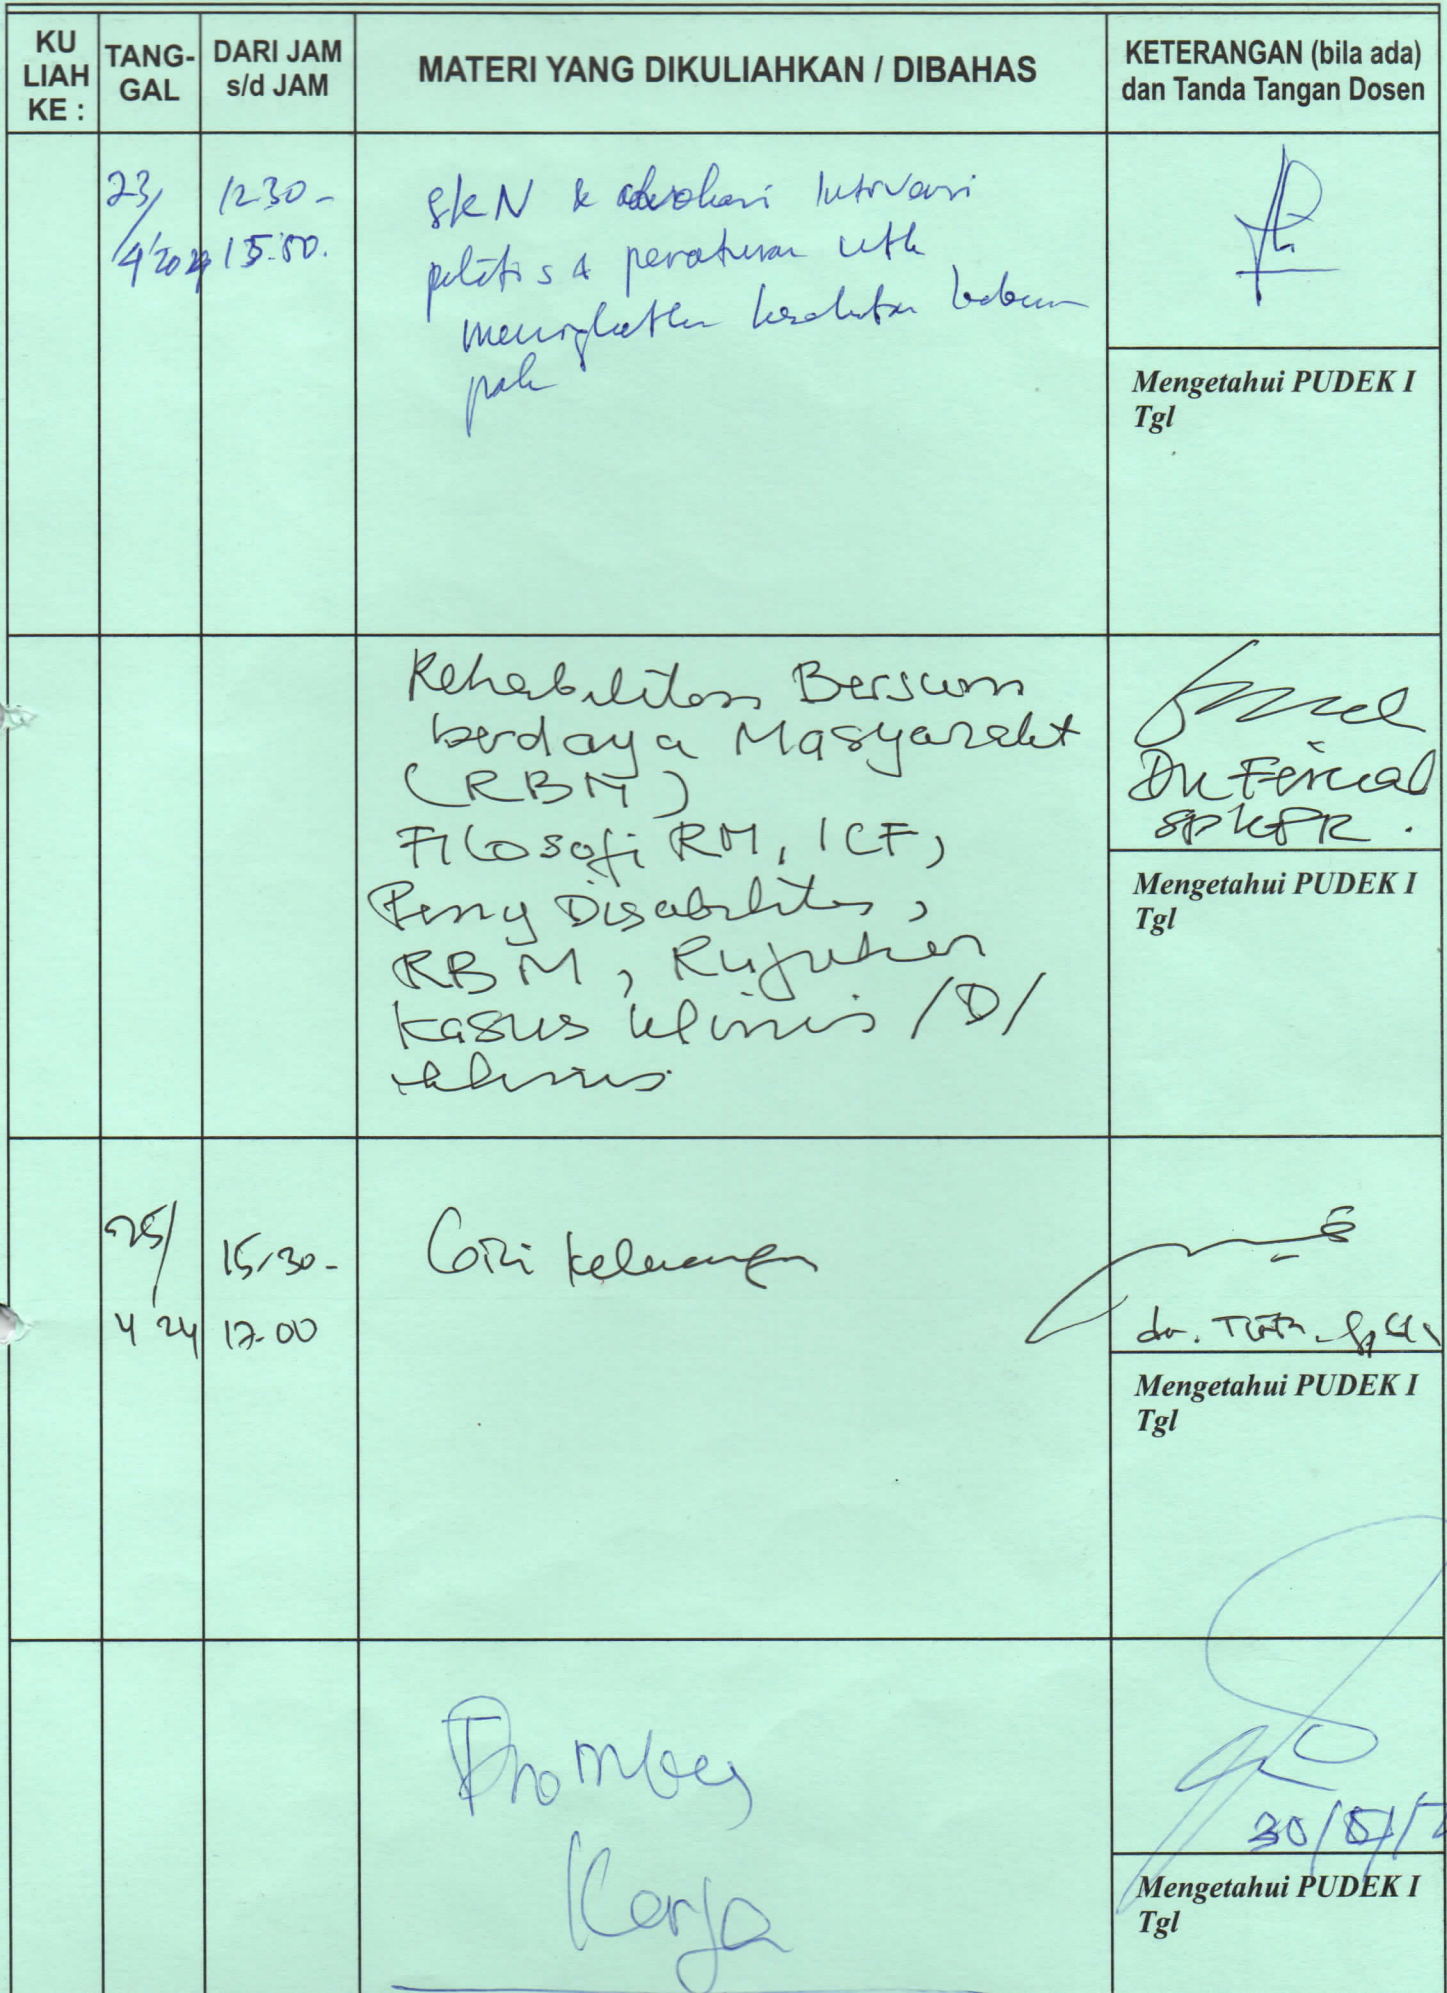 KU
LIAH
KE :
TANG-
GAL
DARI JAM
s/d JAM
MATERI YANG DIKULIAHKAN / DIBAHAS
KETERANGAN (bila ada)
dan Tanda Tangan Dosen
23/
4/2024
12.30 -
15.50.
SKN &
politis & peraturan utk
pak
Mengetahui PUDEK I
Tgl
Bersum
berdaya Masyarakt
(RBM)
Filosofi RM, ICF,
Peny Disabilitas,
RBM, Rujukan
Kasus klinis /D/
SPKFR.
Mengetahui PUDEK I
Tgl
25/
4 24
15.30 -
17.00
Gizi keluarga
dr.
Mengetahui PUDEK I
Tgl
Kerja
30/5/2
Mengetahui PUDEK I
Tgl